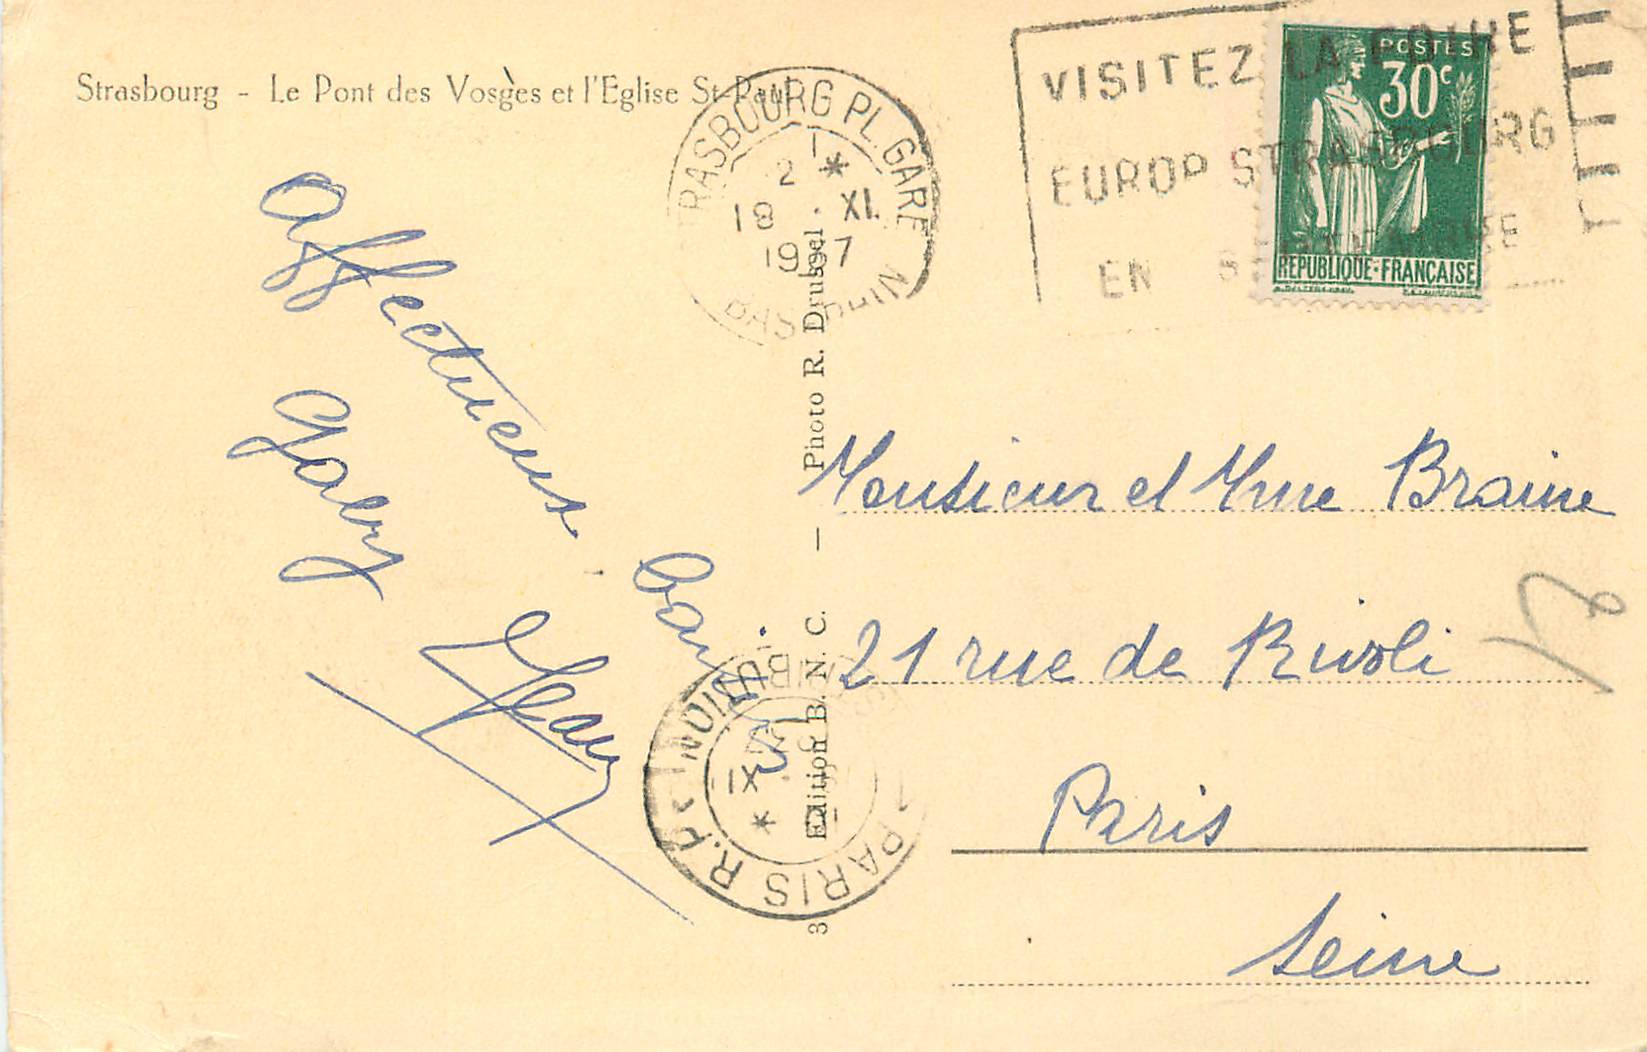 Strasbourg - Le Pont des Vosges et l'Eglise St-Paul
STRASBOURG PL. GARE
2 *
18 . XI.
1937
BAS RHIN
VISITEZ LA FOIRE
EUROP STRASBOURG
EN SEPTEMBRE
POSTES
30c
REPUBLIQUE·FRANÇAISE
Affectueux baisers
Gaby
Jean
Photo R. Drussel
—
Edition B. N. C.
3
Monsieur et Mme Braine
21 rue de Rivoli
Paris
Seine
PARIS R.P.
DISTRIBUTION
XI
*
21